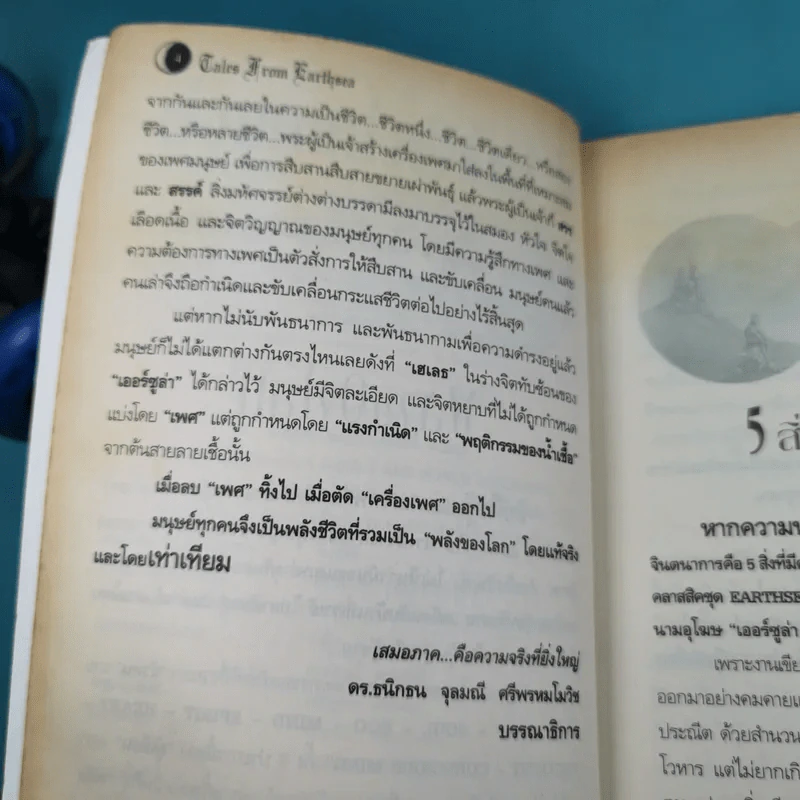 4 Tales From Earthsea
จากกันและกันเลยในความเป็นชีวิต...ชีวิตหนึ่ง...ชีวิต...ชีวิตเดียว
ชีวิต...หรือหลายชีวิต...พระผู้เป็นเจ้าสร้างเครื่องเพศมาใส่ลงในพื้นที่ที่เหมาะสม
ของเพศมนุษย์ เพื่อการสืบสานสืบสายขยายเผ่าพันธุ์ แล้วพระผู้เป็นเจ้าก็
และ สรรค์ สิ่งมหัศจรรย์ต่างต่างบรรดามีลงมาบรรจุไว้ในสมอง หัวใจ
เลือดเนื้อ และจิตวิญญาณของมนุษย์ทุกคน โดยมีความรู้สึกทางเพศ และ
ความต้องการทางเพศเป็นตัวสั่งการให้สืบสาน และขับเคลื่อน มนุษย์คนแล้ว
คนเล่าจึงถือกำเนิดและขับเคลื่อนกระแสชีวิตต่อไปอย่างไร้สิ้นสุด
แต่หากไม่นับพันธนาการ และพันธนากามเพื่อความดำรงอยู่แล้ว
มนุษย์ก็ไม่ได้แตกต่างกันตรงไหนเลยดังที่ “เฮเลธ” ในร่างจิตทับซ้อนของ
“เออร์ซูล่า” ได้กล่าวไว้ มนุษย์มีจิตละเอียด และจิตหยาบที่ไม่ได้ถูกกำหนด
แบ่งโดย “เพศ” แต่ถูกกำหนดโดย “แรงกำเนิด” และ “พฤติกรรมของน้ำเชื้อ”
จากต้นสายลายเชื้อนั้น
เมื่อลบ “เพศ” ทิ้งไป เมื่อตัด “เครื่องเพศ” ออกไป
มนุษย์ทุกคนจึงเป็นพลังชีวิตที่รวมเป็น “พลังของโลก” โดยแท้จริง
และโดยเท่าเทียม
เสมอภาค...คือความจริงที่ยิ่งใหญ่
ดร.ธนิกธน จุลมณี ศรีพรหมโมวิช
บรรณาธิการ
5 สิ่
หากความ
จินตนาการคือ 5 สิ่งที่มี
คลาสสิคชุด EARTHSE
นามอุโฆษ “เออร์ซูล่า
เพราะงานเขีย
ออกมาอย่างคมคาย
ประณีต ด้วยสำนวน
โวหาร แต่ไม่ยากเกิ